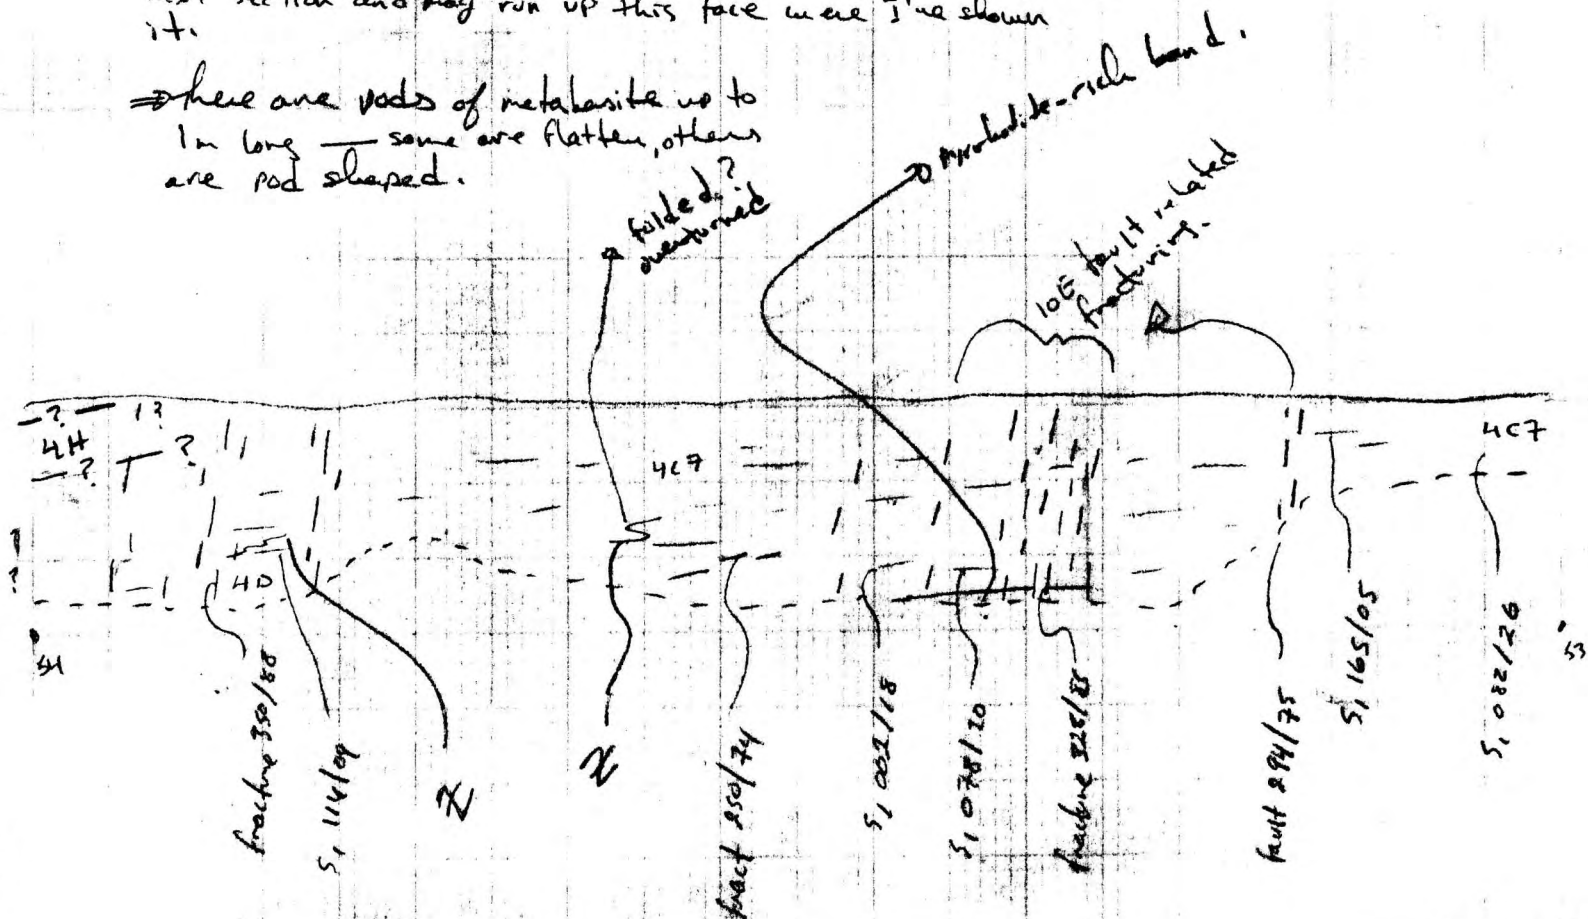 section and may run up this face were I've shown
it.
⇒ there are pods of metabasite up to
1m long — some are flatten, others
are pod shaped.
folded?
overturned
pyrrhotite-rich band.
10E fault related
fracturing.
—?— 1?
4H
—? — ?
4C7
4C7
?
4D
54
53
fracture 350/88
S, 114/09
Z
Z
fract 250/74
S, 002/18
S, 078/20
fracture 328/88
fault 294/75
S, 165/05
S, 082/26